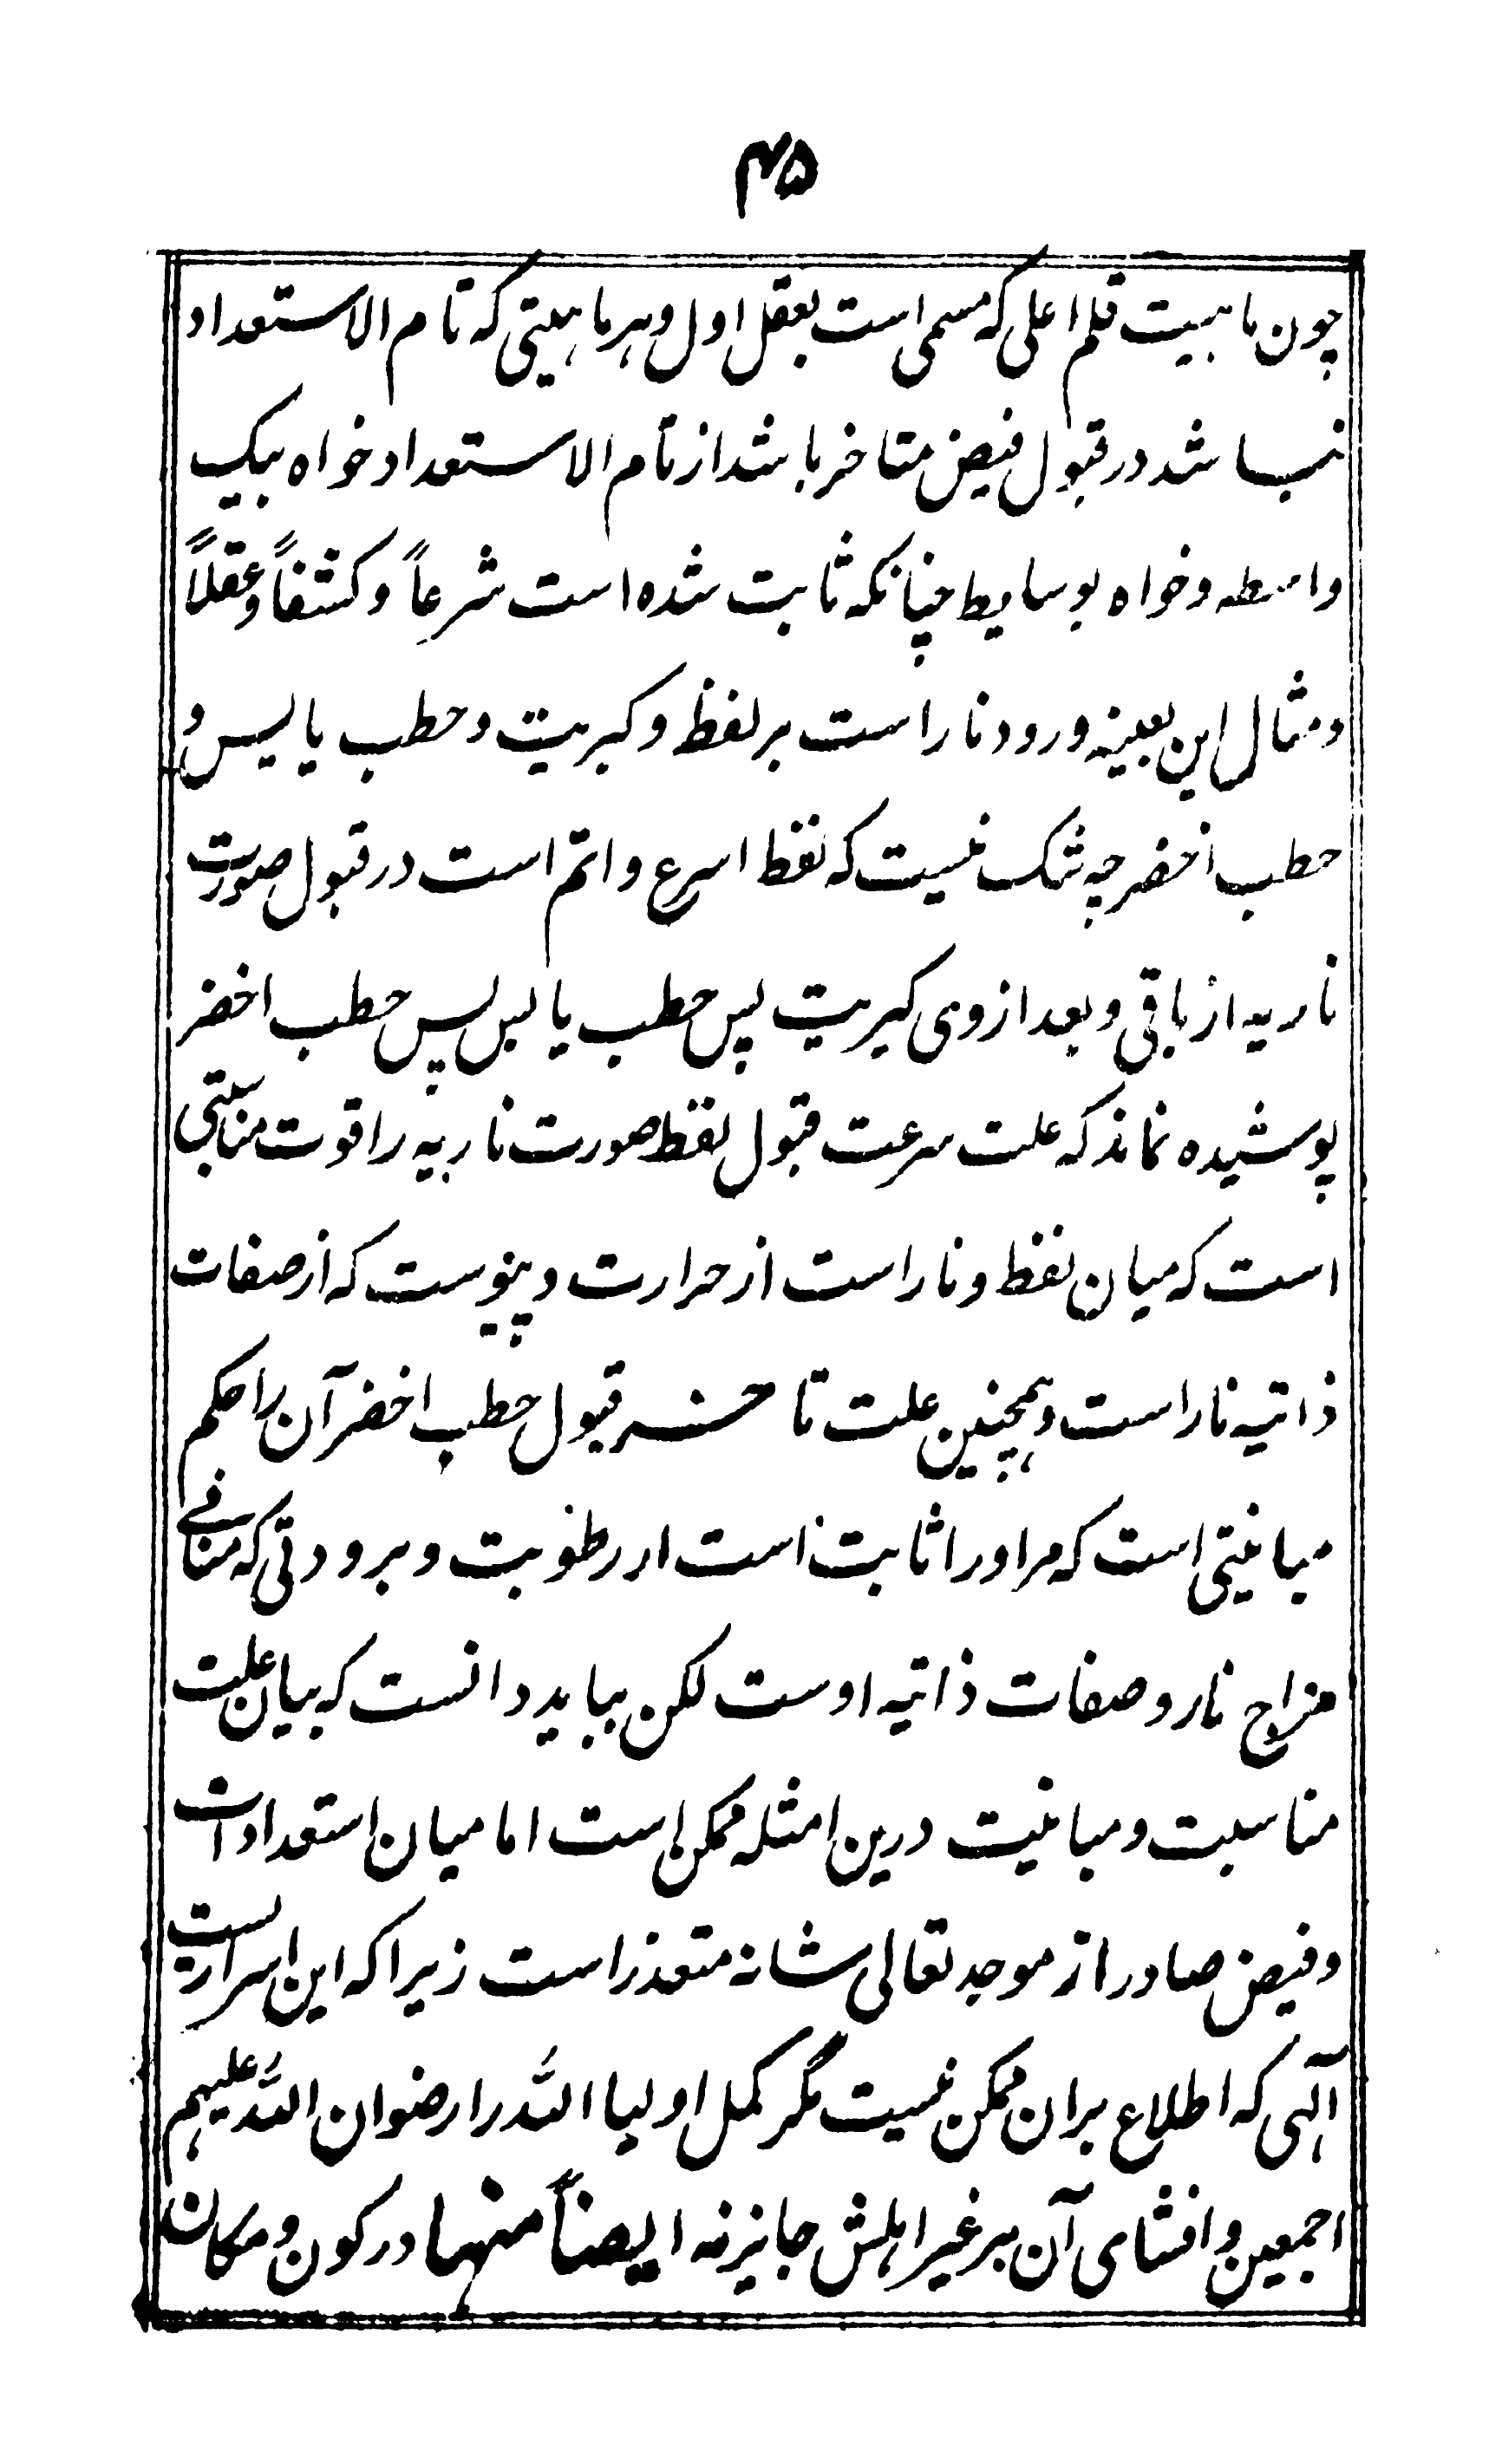 ۴۵
چون ماہیت قلم اعلی کہ مسمی است بعقل اول وہر ماہیتی کہ تام الاستعداد
نباشد در قبول فیض متاخر باشد از تام الاستعداد خواہ بیک
واسطہ وخواہ بوسایط چنانکہ ثابت شدہ است شرعاً وکشفاً وعقلاً
ومثال این بعینہ ورود نار است بر نفظ وکبریت وحطب یابس و
حطب اخضر چہ شک نیست کہ نفط اسرع واتم است در قبول صورت
ناریہ از باقی وبعد از وی کبریت پس حطب یابس پس حطب اخضر
پوشیدہ نماند کہ علت سرعت قبول نفط صورت ناریہ را قوت مناسبتی
است کہ میان نفط ونار است از حرارت ویبوست کہ از صفات
ذاتیہ نار است وہمچنین علت تاخر قبول حطب اخضر آن را حکم
مباینتی است کہ مر اورا ثابت است از رطوبت وبرودتی کہ منافی
مزاج نار وصفات ذاتیہ اوست لکن بباید دانست کہ بیان علت
مناسبت ومباینت درین امثلہ ممکن است اما میان استعدادات
وفیض صادر از موجد تعالی شانہ متعذر است زیرا کہ این اسراریست
آلہی کہ اطلاع بران ممکن نیست مگر کمل اولیا اللہ را رضوان اللہ علیہم
اجمعین وافشای آن بر غیر اہلش جایز نہ ایضاً منہا در کون ومکان